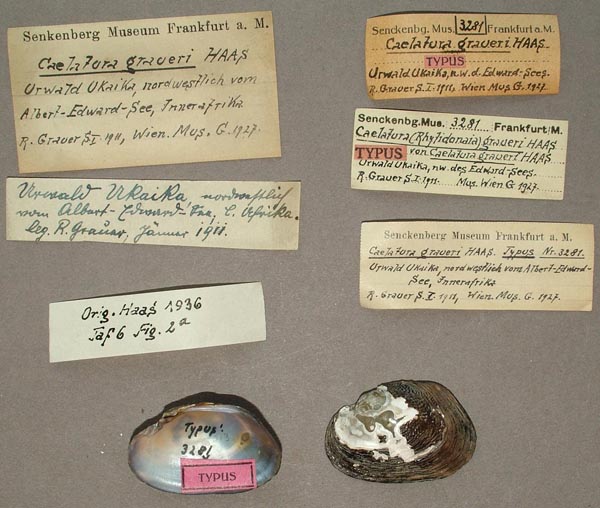 Senkenberg Museum Frankfurt a. M.
Caelatura graueri HAAS
Urwald Ukaika, nordwestlich vom
Albert-Edward-See, Innerafrika
R. Grauer S. I. 1911, Wien. Mus. G. 1927.
Urwald Ukaika, nordwestlich
vom Albert-Edward-See, C. Afrika.
leg. R. Grauer, Jänner 1911.
Orig. Haas 1936
Taf 6 Fig. 2a
Senckenbg. Mus. 3281 Frankfurt a. M.
Caelatura graueri HAAS
TYPUS
Urwald Ukaika, n.w. d. Edward-Sees.
R. Grauer S. I. 1911, Wien Mus G. 1927.
Senckenbg. Mus. 3281 Frankfurt/M.
Caelatura (Rhytidonaia) graueri HAAS
TYPUS von Caelatura graueri HAAS
Urwald Ukaika, n.w. des Edward-Sees.
R. Grauer S. I. 1911. Mus. Wien G. 1927.
Senckenberg Museum Frankfurt a. M.
Caelatura graueri HAAS. Typus Nr. 3281.
Urwald Ukaika, nordwestlich vom Albert-Edward-
See, Innerafrika
R. Grauer S. I. 1911, Wien. Mus. G. 1927.
Typus:
3281
TYPUS